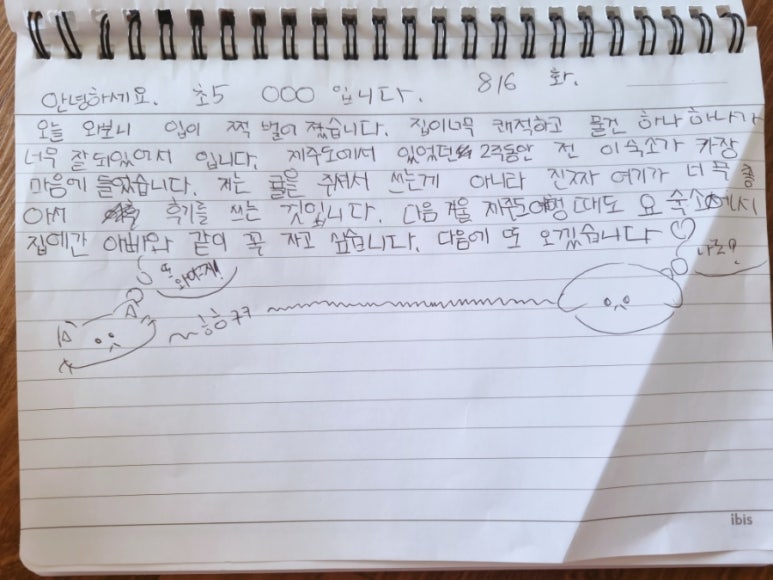 안녕하세요. 초5 OOO 입니다. 8/6 화.
오늘 와보니 입이 쩍 벌어 졌습니다. 집이 너무 쾌적하고 물건 하나 하나가
너무 잘 되있어서 입니다. 제주도에서 있었던 2주동안 전 이 숙소가 가장
마음에 들었습니다. 저는 귤을 주셔서 쓰는게 아니라 진짜 여기가 너무 좋
아서 후기를 쓰는 것입니다. 다음 겨울 제주도여행 때도 요 숙소에서
집에간 아빠와 같이 꼭 자고 싶습니다. 다음에 또 오겠습니다
또 와야지! 나도?
흥흥 ㅋㅋ
ibis